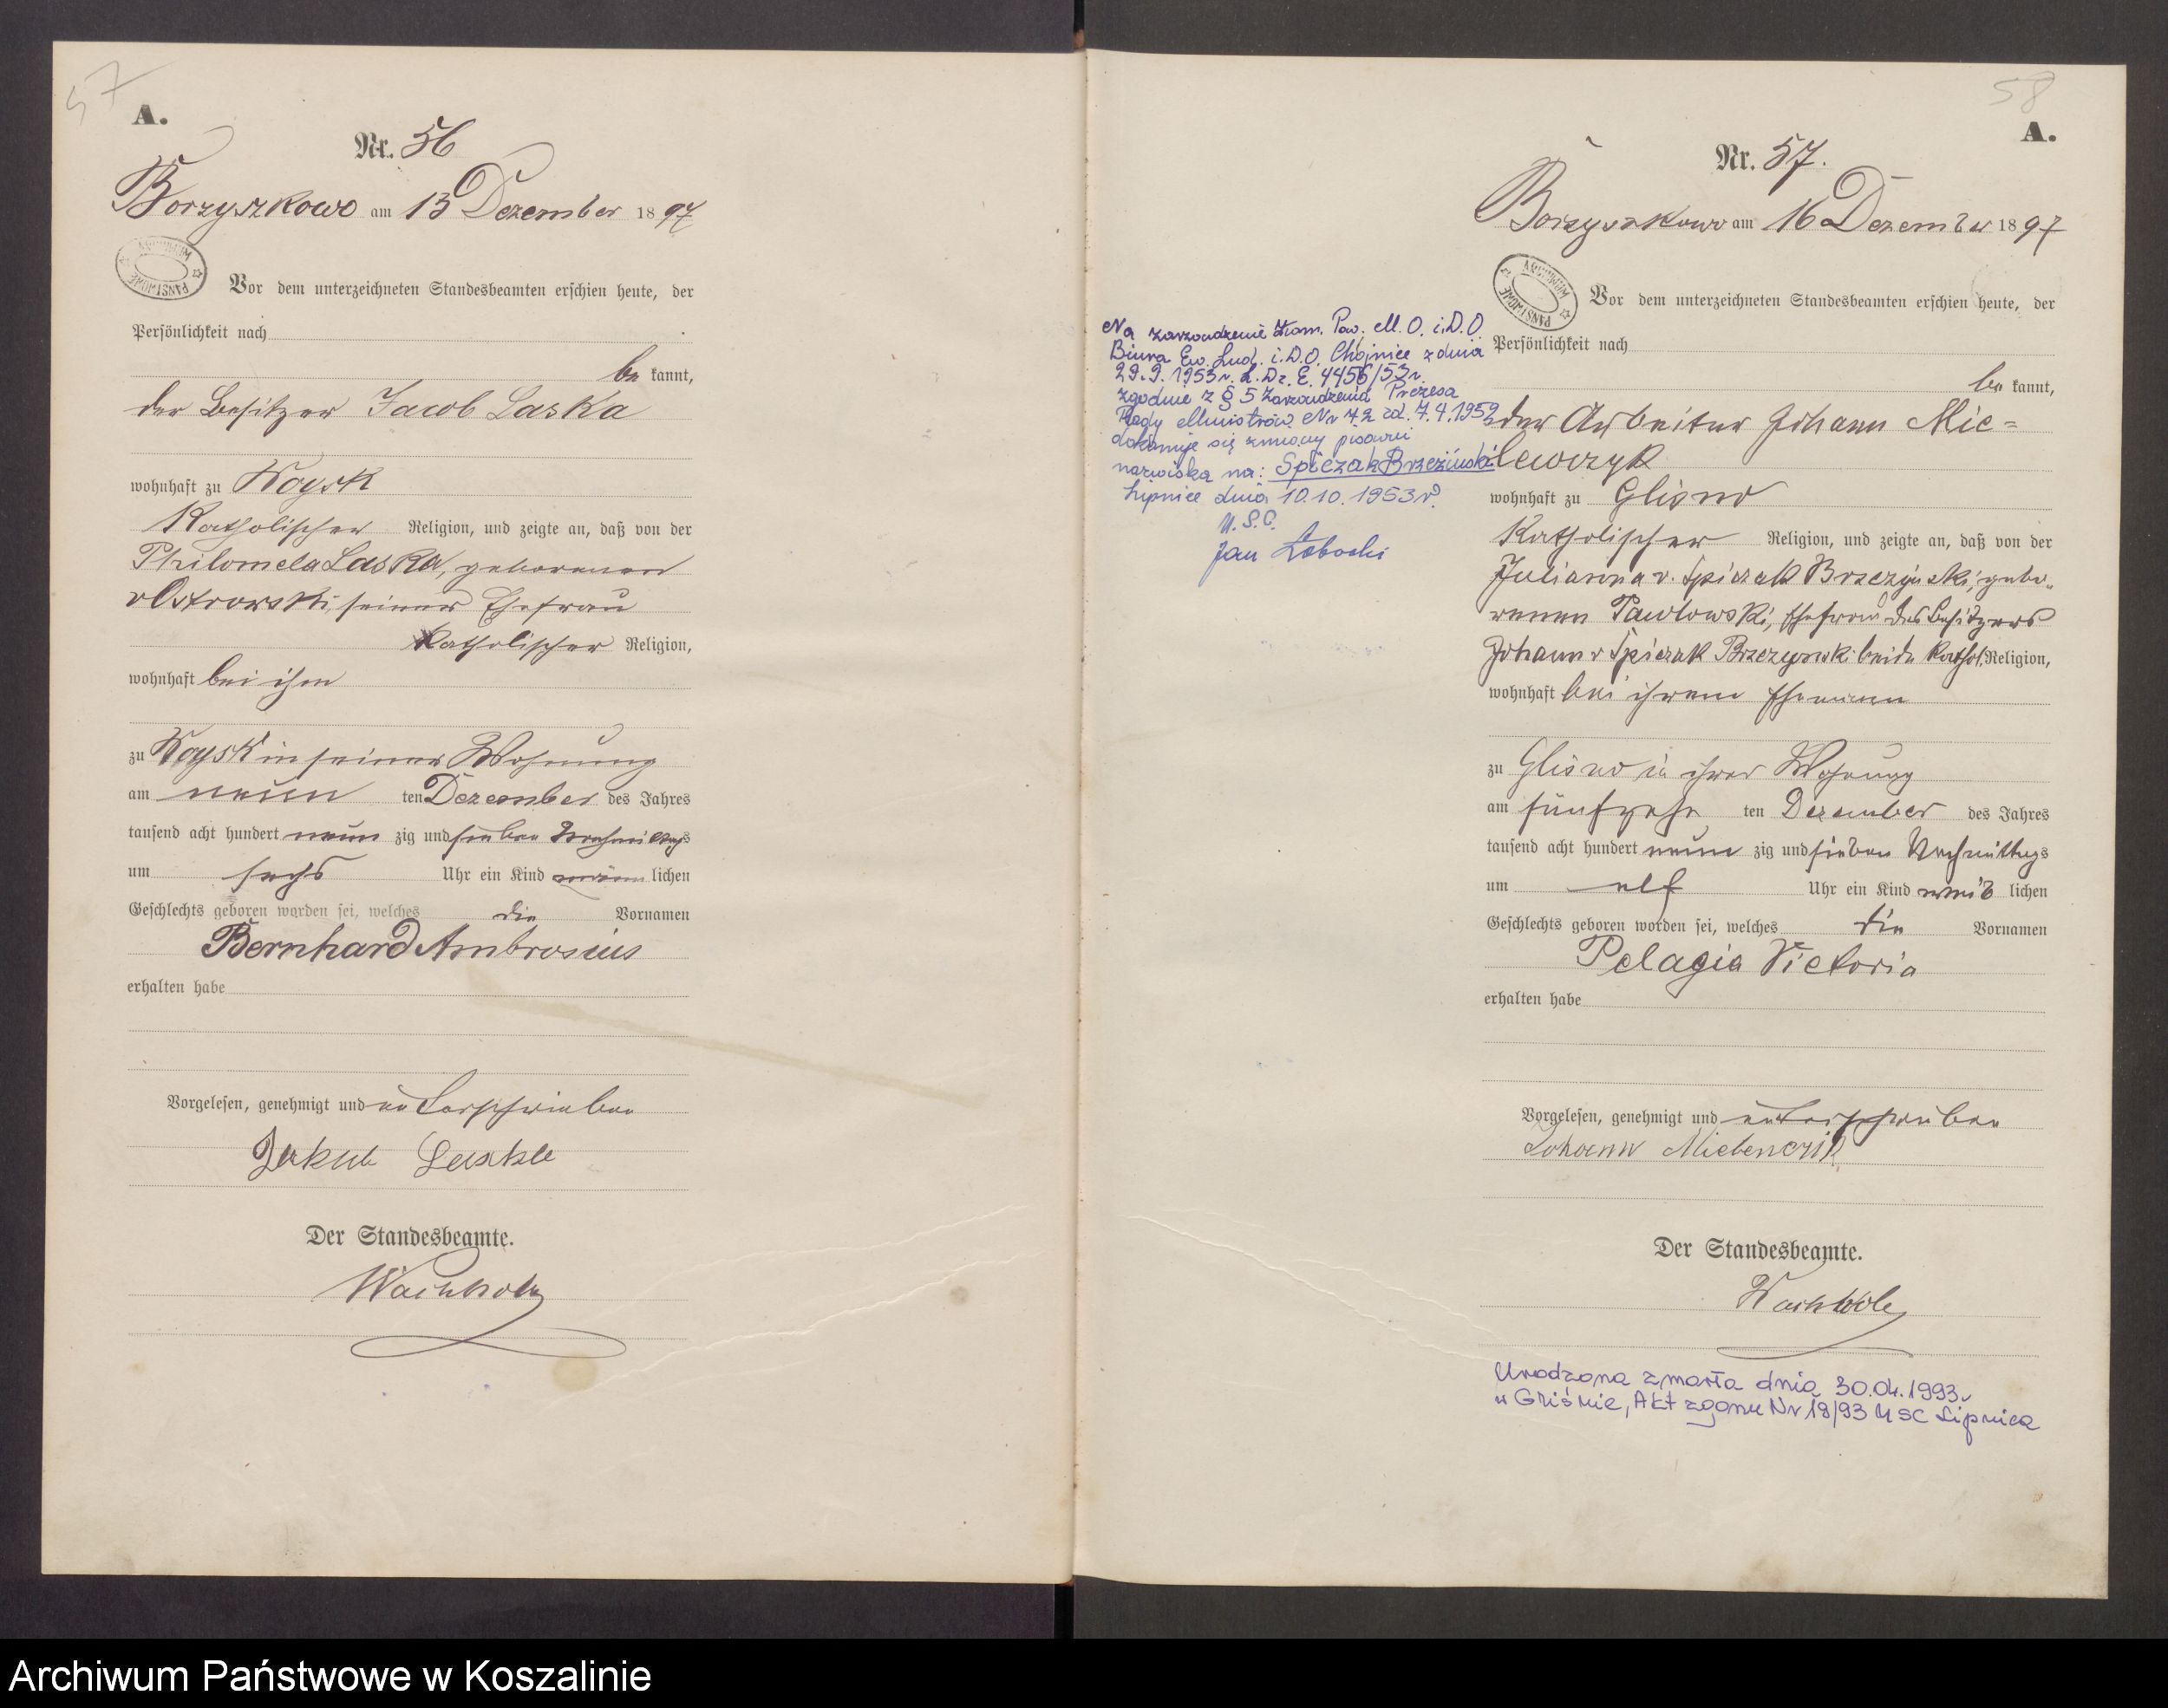 57
A.
Nr. 56
Borzyszkowo am 13 Dezember 1897
ARCHIWUM PAŃSTWOWE
Vor dem unterzeichneten Standesbeamten erschien heute, der
Persönlichkeit nach
be kannt,
der Besitzer Jacob Laska
wohnhaft zu Woysk
Katholischer Religion, und zeigte an, daß von der
Philomela Laska, geborenen
v Ostrowski seiner Ehefrau
Katholischer Religion,
wohnhaft bei ihm
zu Woysk in seiner Wohnung
am neun ten Dezember des Jahres
tausend acht hundert neun zig und sieben Nachmittags
um sechs Uhr ein Kind männ lichen
Geschlechts geboren worden sei, welches die Vornamen
Bernhard Ambrosius
erhalten habe
Vorgelesen, genehmigt und unterschrieben
Jakub Laska
Der Standesbeamte.
58
A.
Nr. 57.
Borzyszkowo am 16 Dezember 1897
ARCHIWUM PAŃSTWOWE
Vor dem unterzeichneten Standesbeamten erschien heute, der
Persönlichkeit nach
be kannt,
der Arbeiter Johann Mie=
lewczyk
wohnhaft zu Glisno
Katholischer Religion, und zeigte an, daß von der
Julianna v. Spiczak Brzezynski, gebo-
renen Pawlowski, Ehefrau des Besitzers
Johann v Spiczak Brzezynski beide kathol. Religion,
wohnhaft bei ihrem Ehemann
zu Glisno in ihrer Wohnung
am fünfzehn ten Dezember des Jahres
tausend acht hundert neun zig und sieben Nachmittags
um elf Uhr ein Kind weib lichen
Geschlechts geboren worden sei, welches die Vornamen
Pelagia Victoria
erhalten habe
Vorgelesen, genehmigt und unterschrieben
Johann
Der Standesbeamte.
Na zarządzenie Kom. Pow. M.O. i.D.O
Biura Ew. Lud. i.D.O. Chojnice z dnia
29.9.1953r. L.Dz.E. 4456/53r.
zgodnie z § 5 Zarządzenia Prezesa
Rady Ministrów Nr 72 zd. 7.4.1952
dokonuje się zmiany pisowni
nazwiska na: Spiczak Brzeziński
Lipnice dnia 10.10.1953r.
U.S.C.
Jan
Urodzona zmarła dnia 30.04.1993r
w Gliśnie, Akt zgonu Nr 18/93 USC Lipnica
Archiwum Państwowe w Koszalinie